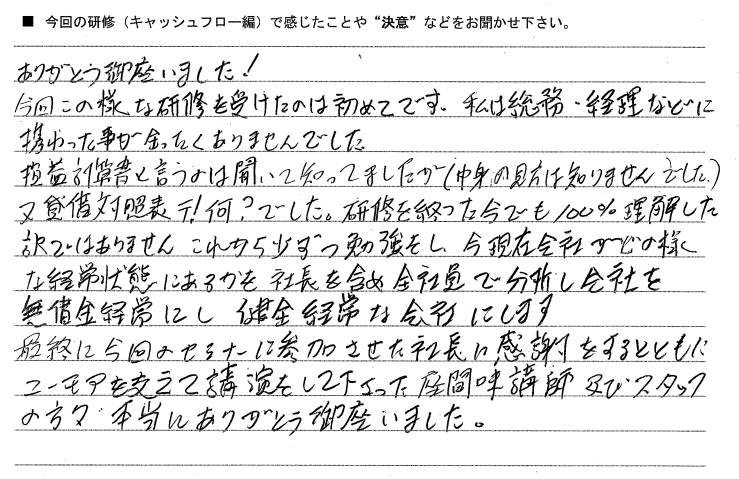 ■ 今回の研修（キャッシュフロー編）で感じたことや“決意”などをお聞かせ下さい。
ありがとう御座いました！
今回この様な研修を受けたのは初めてです。私は総務・経理などに
携わった事が全ったくありませんでした
損益計算書と言うのは聞いて知ってましたが（中身の見方は知りませんでした。）
又貸借対照表デ！何？でした。研修を終った今でも100％理解した
訳ではありません これから少ずつ勉強をし、今現在会社がどの様
な経営状態にあるかを社長を含め全社員で分析し会社を
無借金経営にし 健全経営な会社にします
最終に今回のセミナーに参加させた社長に感謝をするとともに
ユーモアを交えて講演をして下さった 講師及びスタッフ
の方々 本当にありがとう御座いました。